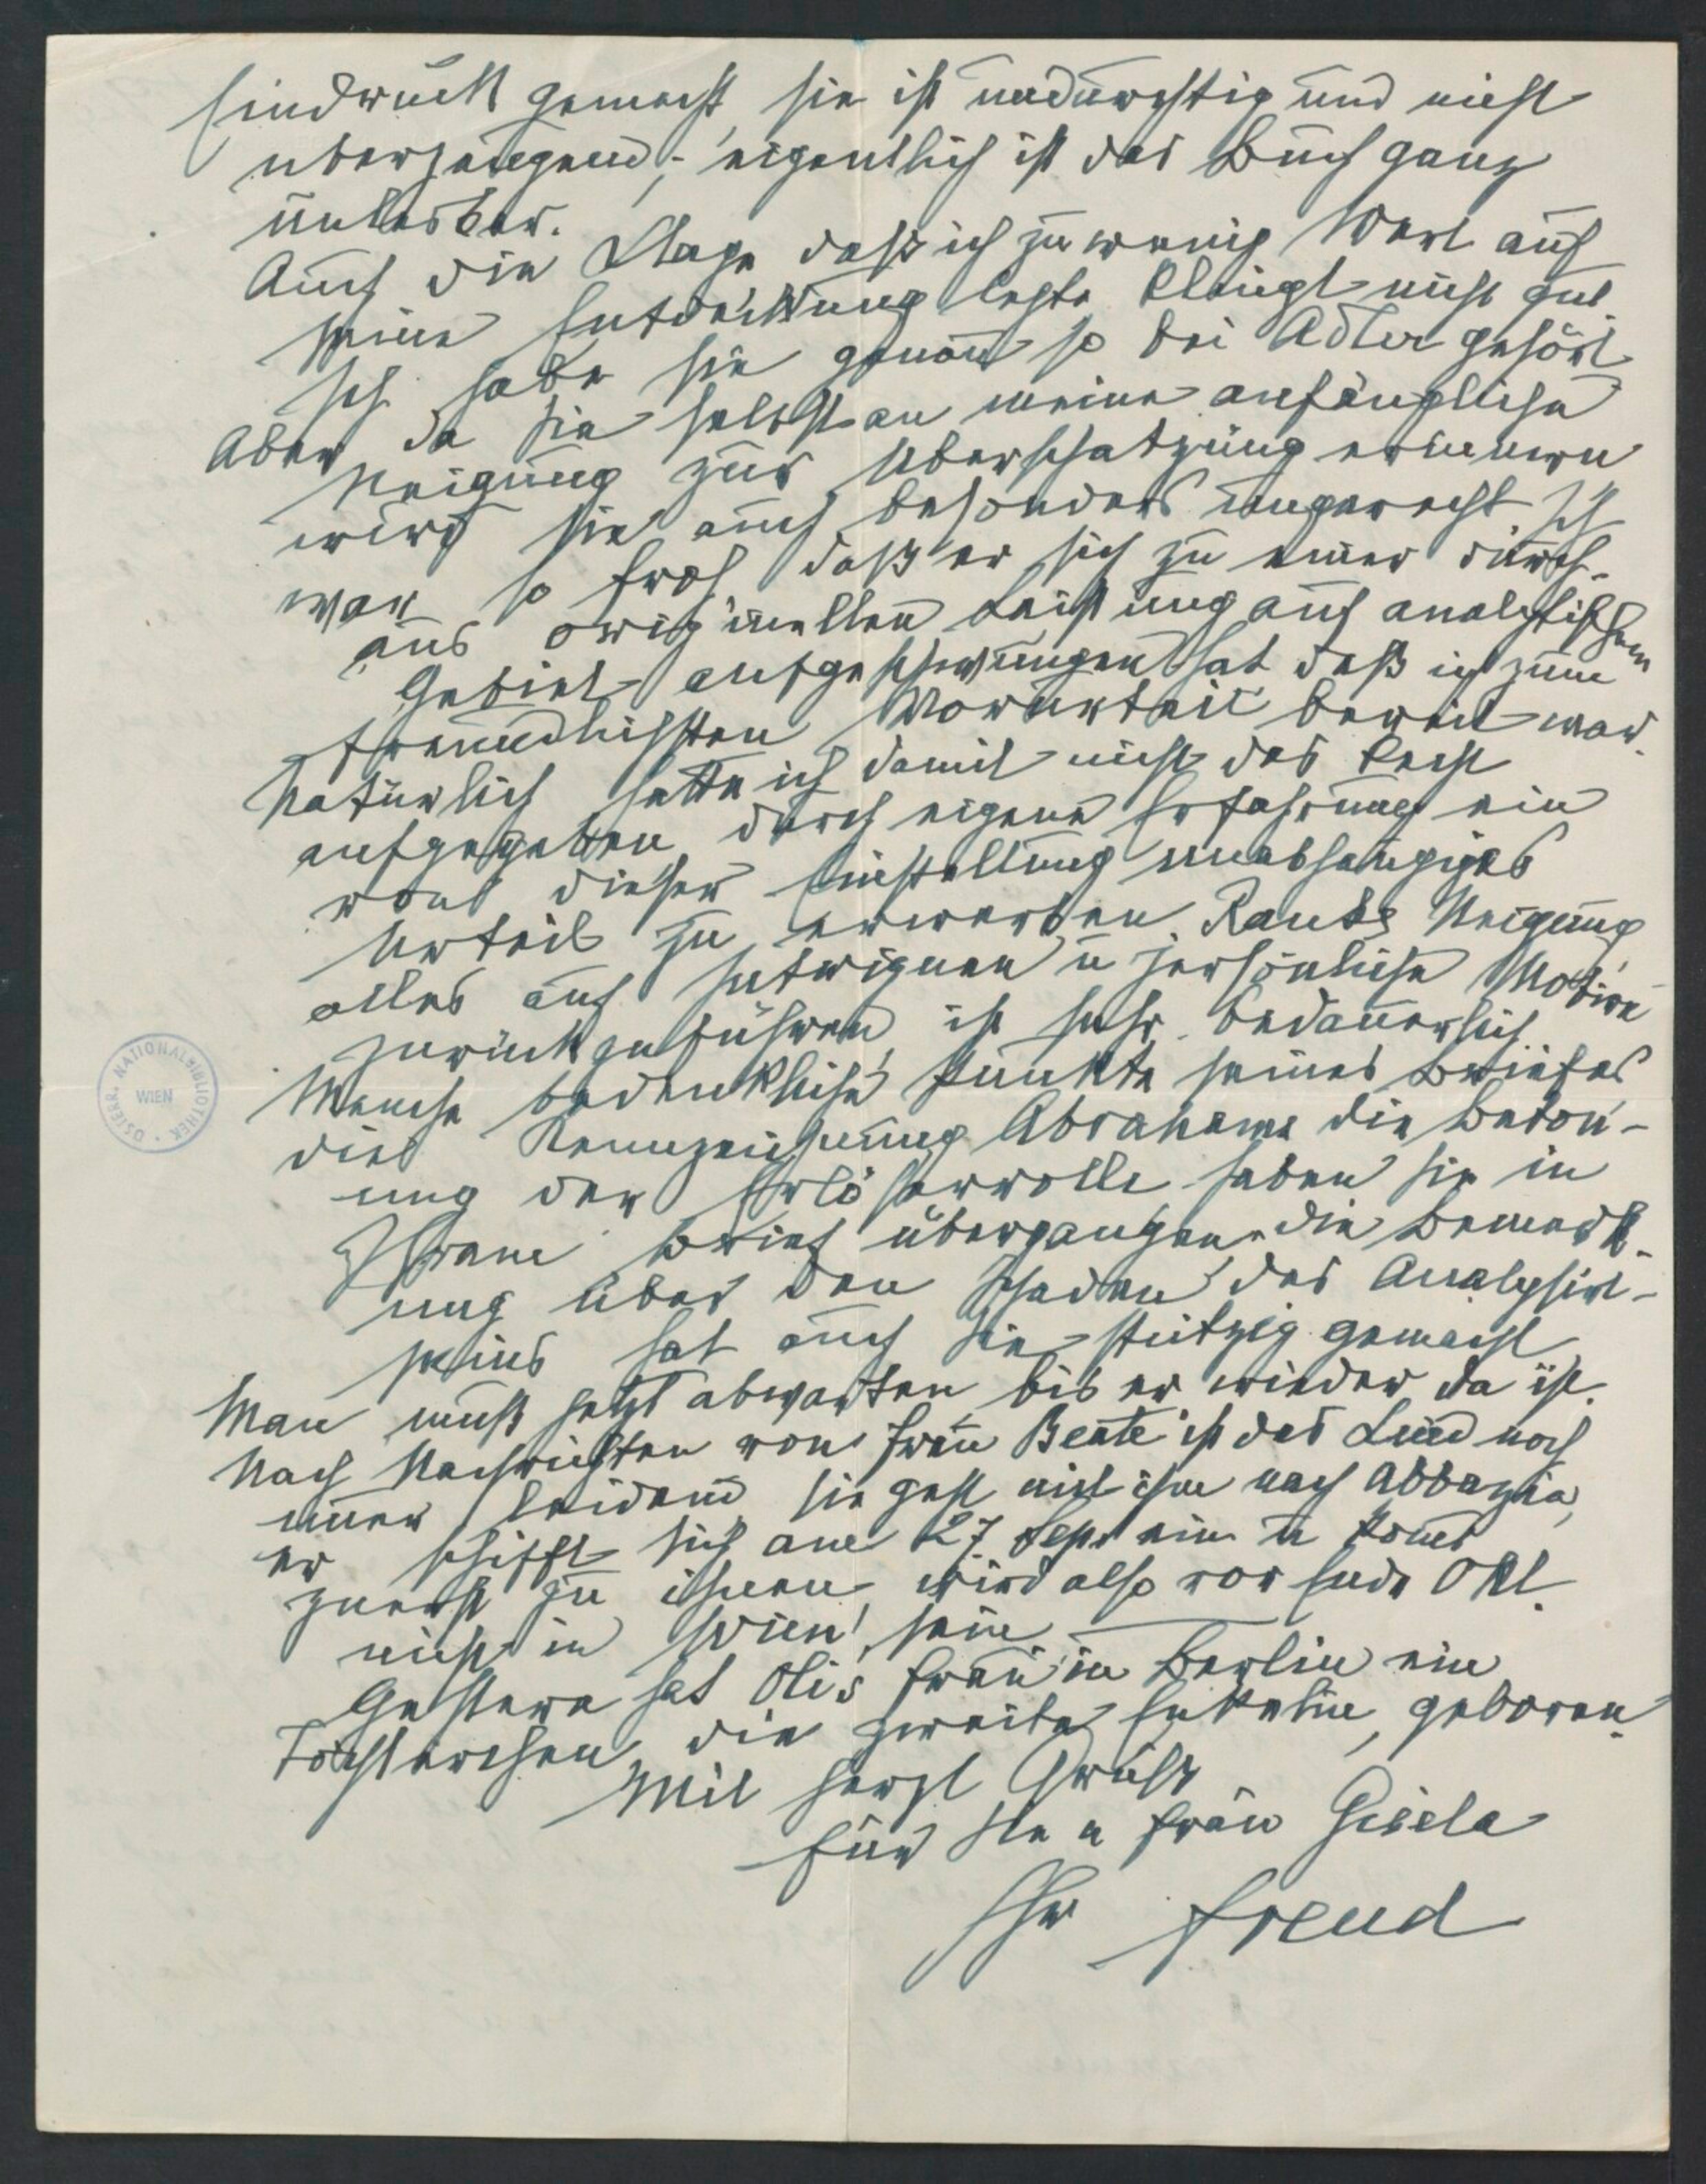 Eindruck gemacht, sie ist undurchsichtig und nicht
überzeugend; eigentlich ist das Buch ganz
unlesbar.
Auch die Klage daß ich zu wenig Wert auf
seine Entdeckung legte klingt nicht gut.
Ich habe sie genau so bei Adler gehört.
Aber da Sie selbst an meine anfängliche
Neigung zur Überschätzung erinnern
wird sie auch besonders ungerecht. Ich
war so froh daß er sich zu einer durch-
aus originellen Leistung auf analytischem
Gebiet aufgeschwungen hat daß ich zum
freundlichsten Vorurteil bereit war.
Natürlich hatte ich damit nicht das Recht
aufgegeben durch eigene Erfahrung ein
von dieser Einstellung unabhängiges
Urteil zu erwerben. Ranks Neigung
alles auf Intriguen u persönliche Motive
zurückzuführen ist sehr bedauerlich.
Manche bedenkliche Punkte seines Briefes
die Kennzeichnung Abrahams die Beton-
ung der Erlöserrolle haben Sie in
Ihrem Brief übergangen. die Bemerk-
ung über den Schaden des Analysirt-
seins hat auch Sie stutzig gemacht
Man muß jetzt abwarten bis er wieder da ist.
Nach Nachrichten von Frau Beate ist das Kind noch
immer leidend sie geht mit ihm nach Abbazia,
er schifft sich am 27 Sept ein u kommt
zuerst zu ihnen, wird also vor Ende Okt.
nicht in Wien sein
Gestern hat Olis Frau in Berlin ein
Töchterchen, die zweite Enkelin, geboren.
Mit herzl Gruß
für Sie u Frau Gisela
Ihr Freud
ÖSTERR. NATIONALBIBLIOTHEK
WIEN